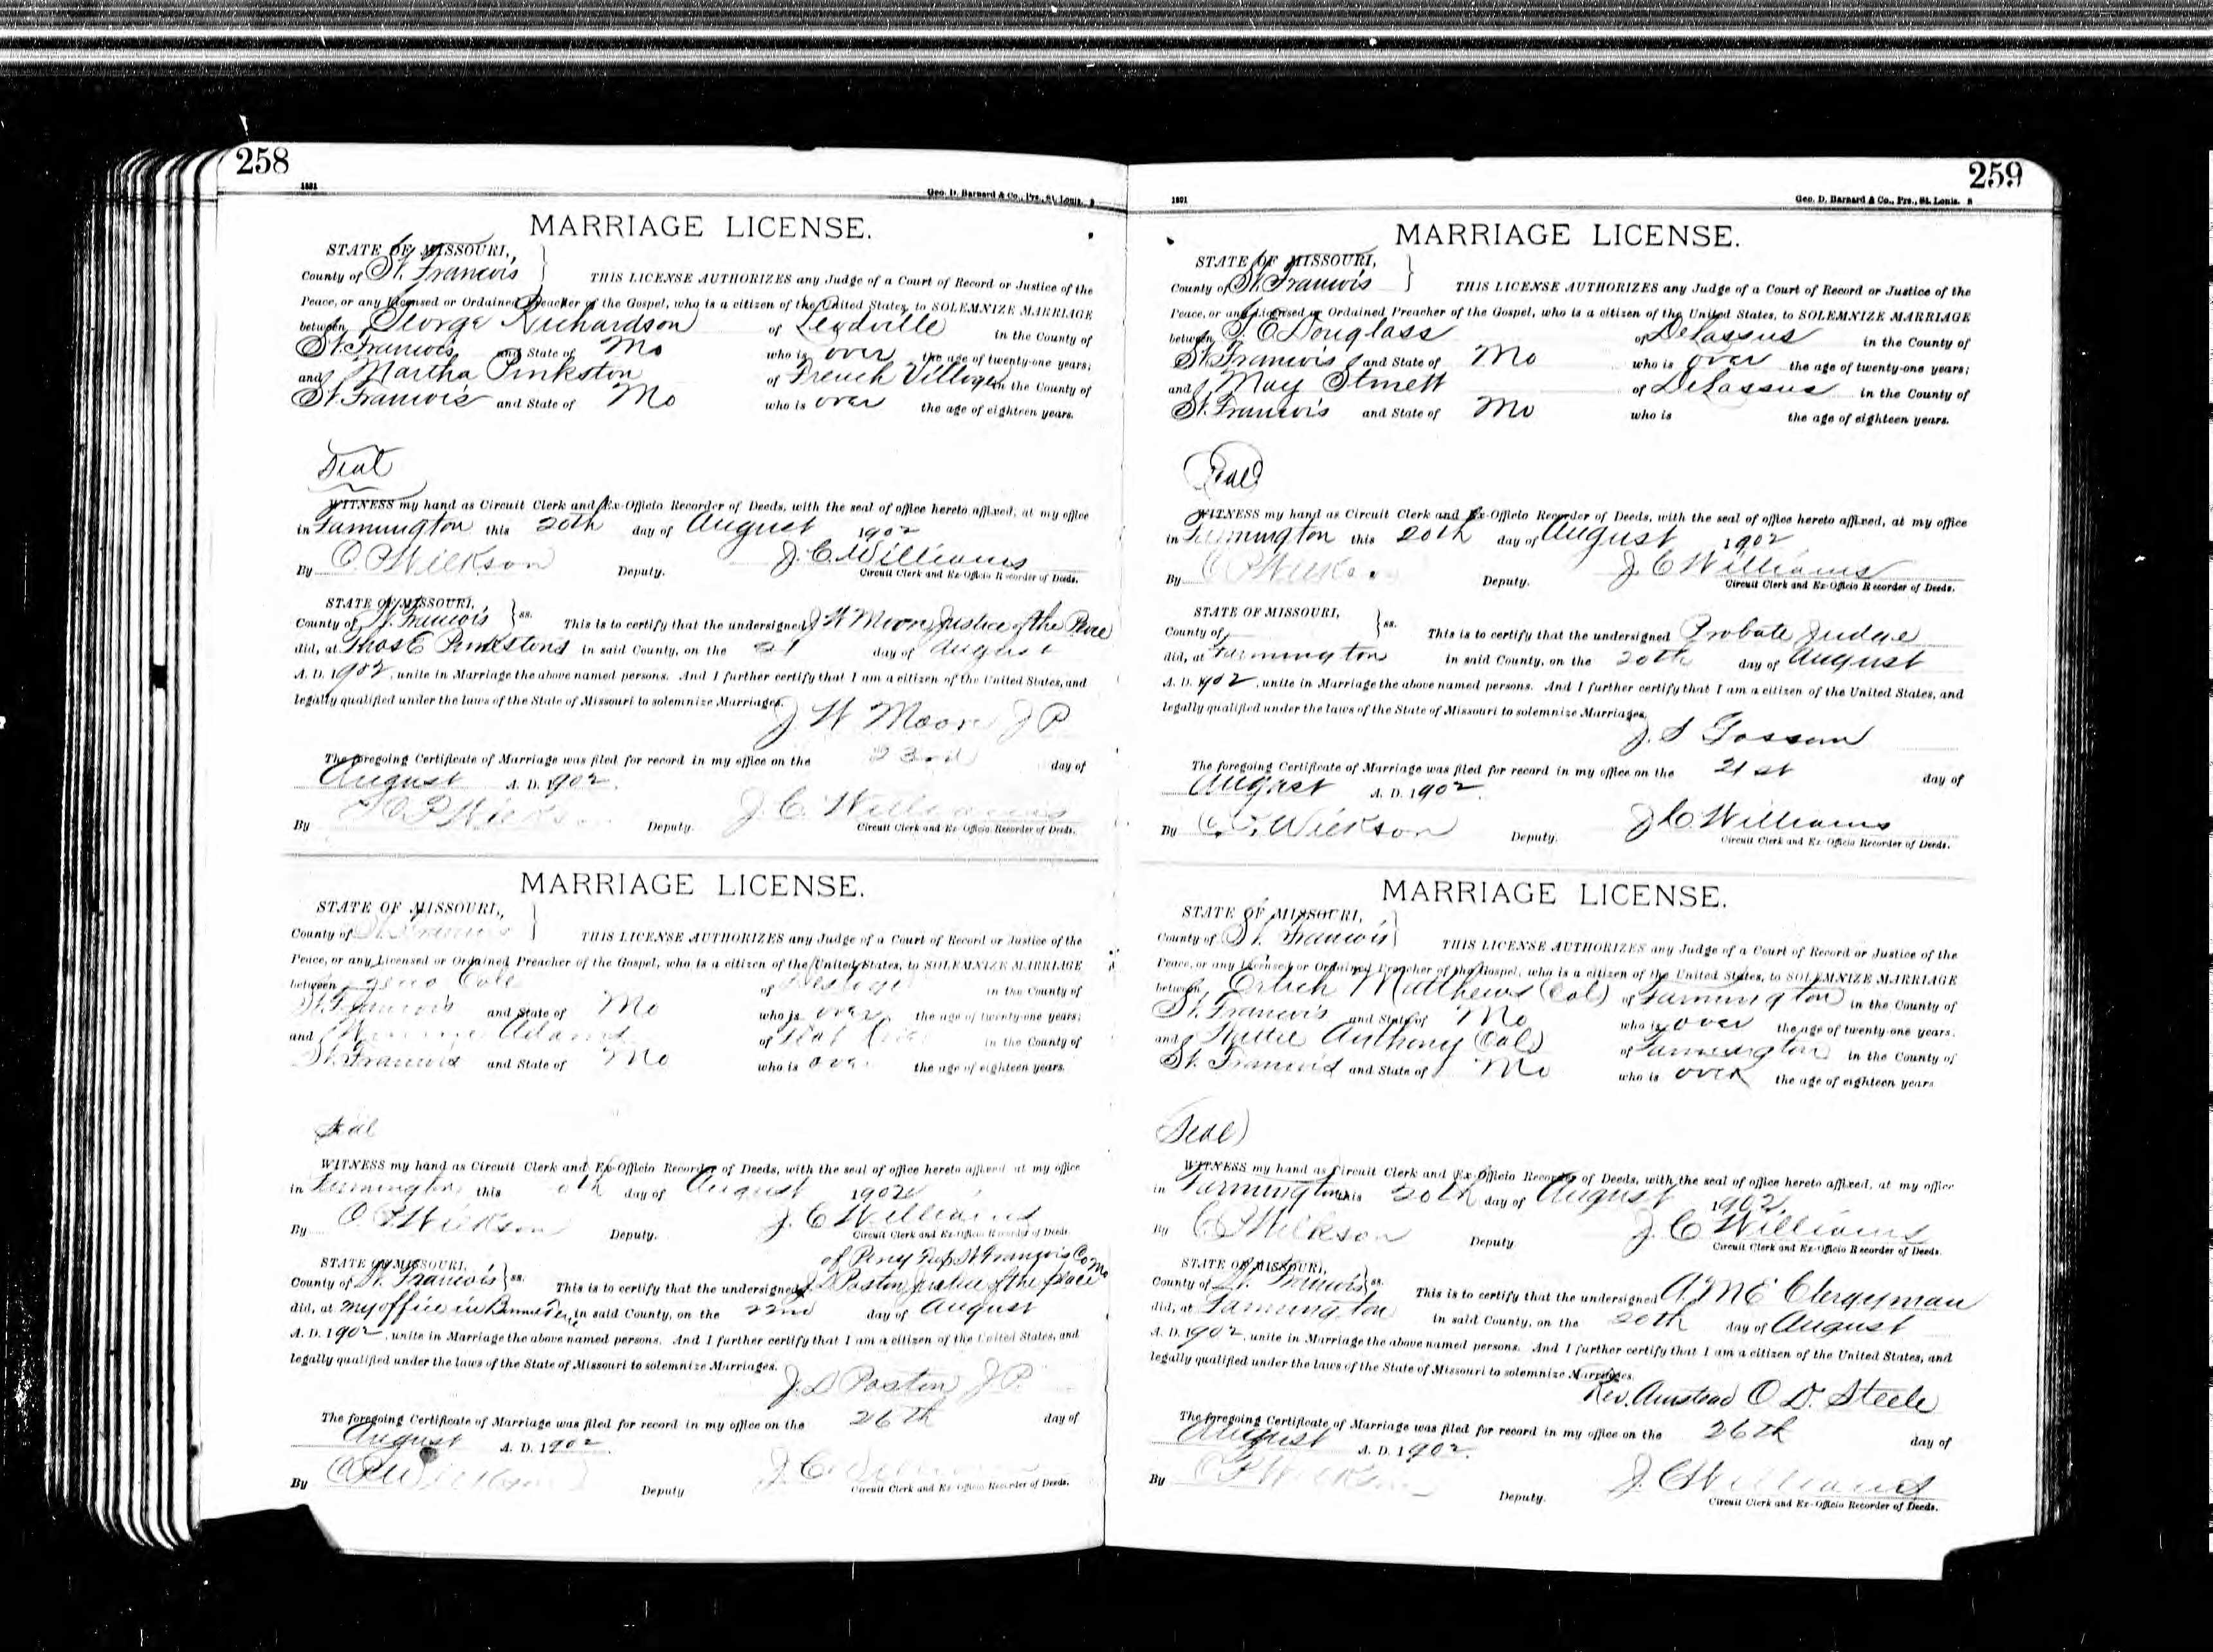 258
1891
Geo. D. Barnard & Co., Prs., St. Louis.
MARRIAGE LICENSE.
STATE OF MISSOURI,
County of St. Francois THIS LICENSE AUTHORIZES any Judge of a Court of Record or Justice of the
Peace, or any Licensed or Ordained Preacher of the Gospel, who is a citizen of the United States, to SOLEMNIZE MARRIAGE
between George Richardson of Leadville in the County of
St. Francois and State of Mo who is over the age of twenty-one years;
and Martha Pinkston of French Village in the County of
St. Francois and State of Mo who is over the age of eighteen years.
Seal
WITNESS my hand as Circuit Clerk and Ex-Officio Recorder of Deeds, with the seal of office hereto affixed, at my office
in Farmington this 20th day of August 1902
By Deputy. J. C. Williams
Circuit Clerk and Ex-Officio Recorder of Deeds.
STATE OF MISSOURI,
County of St. Francois ss. This is to certify that the undersigned J W Moon Justice of the Peace
did, at Thos E Pinkstons in said County, on the 21 day of August
A. D. 1902, unite in Marriage the above named persons. And I further certify that I am a citizen of the United States, and
legally qualified under the laws of the State of Missouri to solemnize Marriages.
J W Moon J P
The foregoing Certificate of Marriage was filed for record in my office on the 23rd day of
August A. D. 1902.
By Deputy. J. C. Williams
Circuit Clerk and Ex-Officio Recorder of Deeds.
MARRIAGE LICENSE.
STATE OF MISSOURI,
County of St. Francois THIS LICENSE AUTHORIZES any Judge of a Court of Record or Justice of the
Peace, or any Licensed or Ordained Preacher of the Gospel, who is a citizen of the United States, to SOLEMNIZE MARRIAGE
between Cole of in the County of
St. Francois and State of Mo who is over the age of twenty-one years;
and Adams of in the County of
St. Francois and State of Mo who is over the age of eighteen years.
Seal
WITNESS my hand as Circuit Clerk and Ex-Officio Recorder of Deeds, with the seal of office hereto affixed at my office
in Farmington this day of August 1902
By Deputy. J. C Williams
Circuit Clerk and Ex-Officio Recorder of Deeds
of Perry Twp St Francois Co Mo
STATE OF MISSOURI,
County of St. Francois ss. This is to certify that the undersigned J D Poston justice of the peace
did, at my office in in said County, on the 22nd day of August
A. D. 1902, unite in Marriage the above named persons. And I further certify that I am a citizen of the United States, and
legally qualified under the laws of the State of Missouri to solemnize Marriages.
J. D Poston J P.
The foregoing Certificate of Marriage was filed for record in my office on the 26th day of
August A. D. 1902.
By Deputy J. C.
Circuit Clerk and Ex-Officio Recorder of Deeds.
259
1891
Geo. D. Barnard & Co., Prs., St. Louis.
MARRIAGE LICENSE.
STATE OF MISSOURI,
County of St. Francois THIS LICENSE AUTHORIZES any Judge of a Court of Record or Justice of the
Peace, or any Licensed or Ordained Preacher of the Gospel, who is a citizen of the United States, to SOLEMNIZE MARRIAGE
between E Douglass of DeLassus in the County of
St. Francois and State of Mo who is over the age of twenty-one years;
and May of DeLassus in the County of
St. Francois and State of Mo who is the age of eighteen years.
Seal
WITNESS my hand as Circuit Clerk and Ex-Officio Recorder of Deeds, with the seal of office hereto affixed, at my office
in Farmington this 20th day of August 1902
By Deputy. J. C Williams
Circuit Clerk and Ex-Officio Recorder of Deeds.
STATE OF MISSOURI,
County of ss. This is to certify that the undersigned Probate Judge
did, at Farmington in said County, on the 20th day of August
A. D. 1902, unite in Marriage the above named persons. And I further certify that I am a citizen of the United States, and
legally qualified under the laws of the State of Missouri to solemnize Marriages.
J. S Gossom
The foregoing Certificate of Marriage was filed for record in my office on the 21st day of
August A. D. 1902.
By Deputy. J C Williams
Circuit Clerk and Ex-Officio Recorder of Deeds.
MARRIAGE LICENSE.
STATE OF MISSOURI,
County of St. Francois THIS LICENSE AUTHORIZES any Judge of a Court of Record or Justice of the
Peace, or any Licensed or Ordained Preacher of the Gospel, who is a citizen of the United States, to SOLEMNIZE MARRIAGE
between Matthews (Col) of Farmington in the County of
St. Francois and State of Mo who is over the age of twenty-one years.
and Anthony (Col) of Farmington in the County of
St. Francois and State of Mo who is over the age of eighteen years
Seal)
WITNESS my hand as Circuit Clerk and Ex-Officio Recorder of Deeds, with the seal of office hereto affixed, at my office
in Farmington this 20th day of August 1902.
By Deputy J. C Williams
Circuit Clerk and Ex-Officio Recorder of Deeds.
STATE OF MISSOURI,
County of St. Francois ss. This is to certify that the undersigned A M E Clergyman
did, at Farmington in said County, on the 20th day of August
A. D. 1902, unite in Marriage the above named persons. And I further certify that I am a citizen of the United States, and
legally qualified under the laws of the State of Missouri to solemnize Marriages.
Rev. O. D. Steele
The foregoing Certificate of Marriage was filed for record in my office on the 26th day of
August A. D. 1902.
By Deputy. J. C Williams
Circuit Clerk and Ex-Officio Recorder of Deeds.